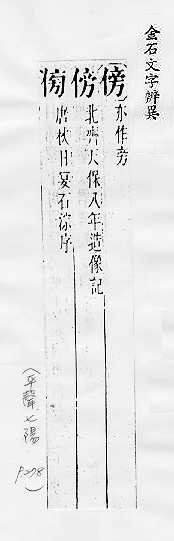 金石文字辨異
傍 亦作旁
傍 北齊天保八年造像記
傍 唐秋日宴石淙序
(平聲七陽
P278)